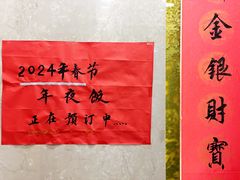 2024年春节
年夜饭
正在预订中.....
金銀財寶